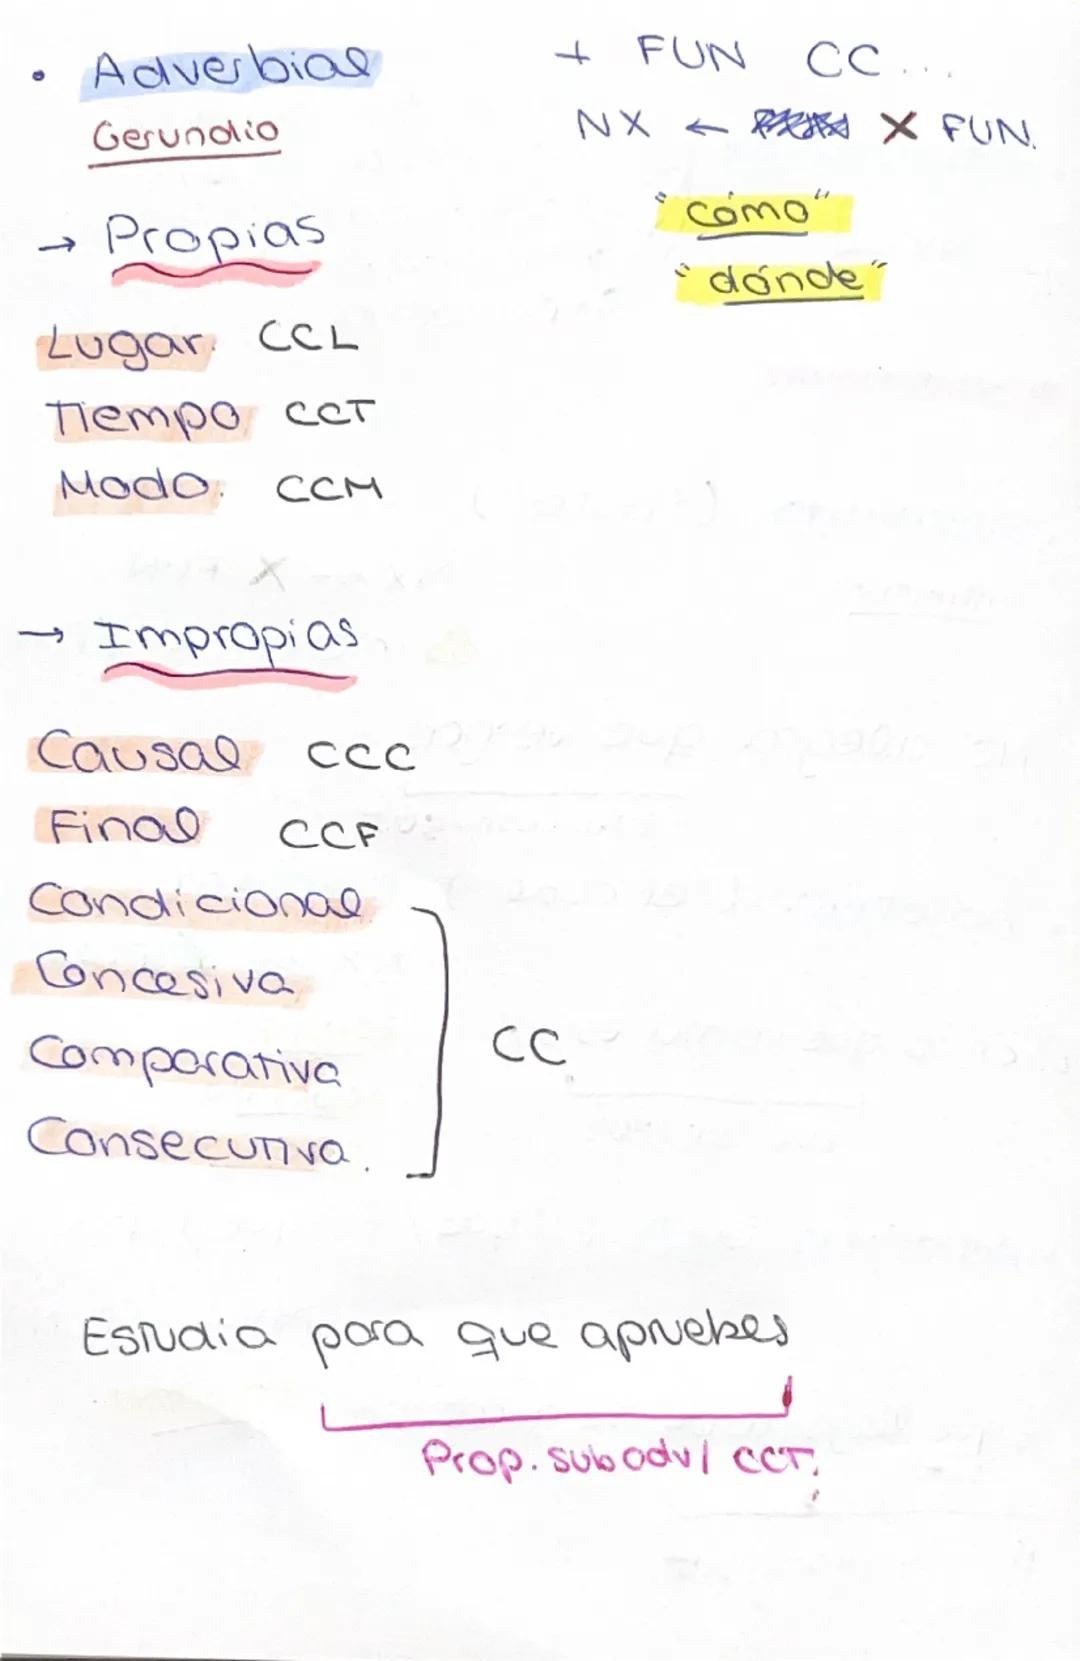 • Adverbial + FUN CC...
Gerundio NX ← X FUN.
"cómo"
→ Propias
"dónde"
Lugar. CCL
Tiempo CCT
Modo. CCM
→ Impropias
Causal CCC
Final CCF
Condicional
Concesiva
CC
Comparativa
Consecutiva.
Estudia para que apruebes
Prop. sub adv / CCT.